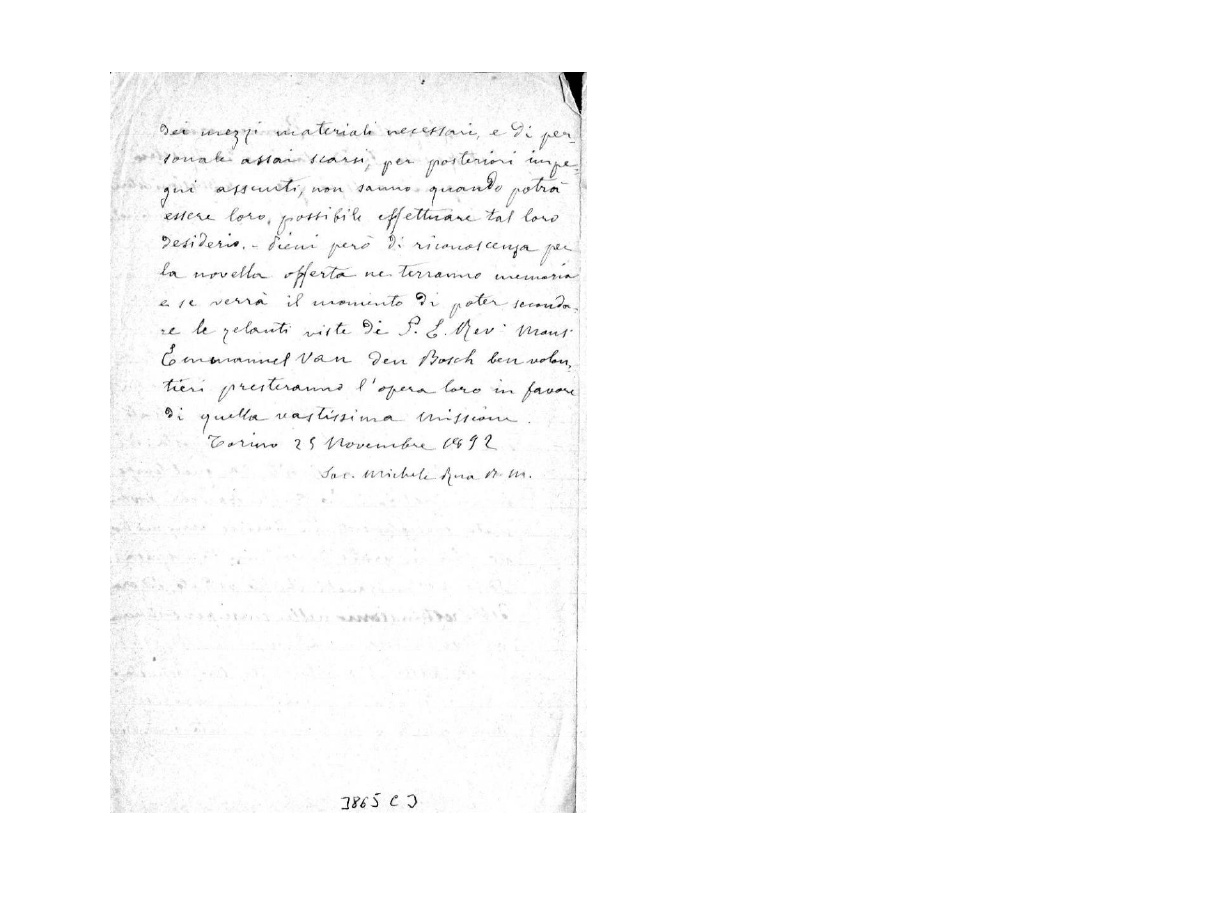 dei mezzi materiali necessari, e di per-
sonale assai scarsi, per posteriori impe-
gni assunti, non sanno quando potrà
essere loro, possibile effettuare tal loro
desiderio. - Pieni però di riconoscenza per
la novella offerta ne terranno memoria
e se verrà il momento di poter seconda-
re le zelanti viste di S. E. Rev. Mons.
Emmanuel Van den Bosch ben volen-
tieri presteranno l'opera loro in favore
di quella vastissima missione.
Torino 25 Novembre 1892
Sac. Michele Rua R. M.
3865 C 3